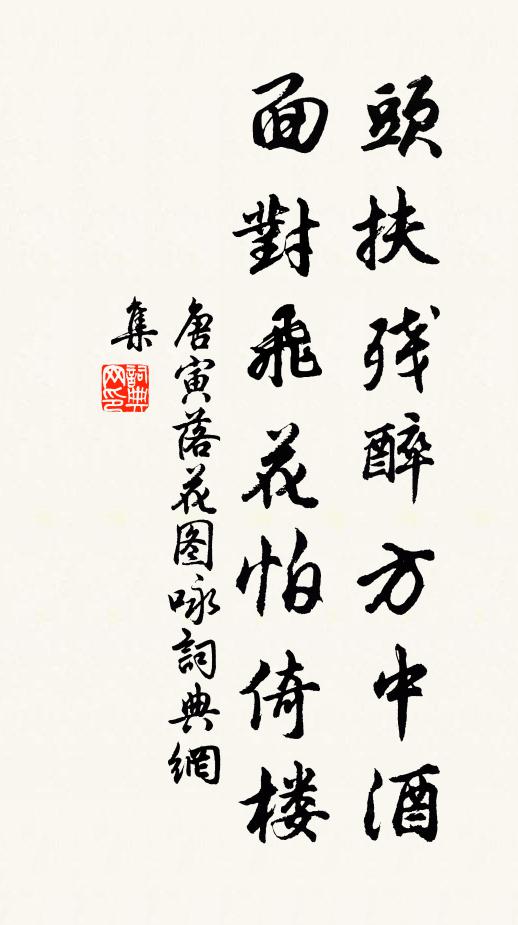 頭扶残醉方中酒
面對飛花怕倚楼
唐寅落花图咏詞典網
集
詞典网印